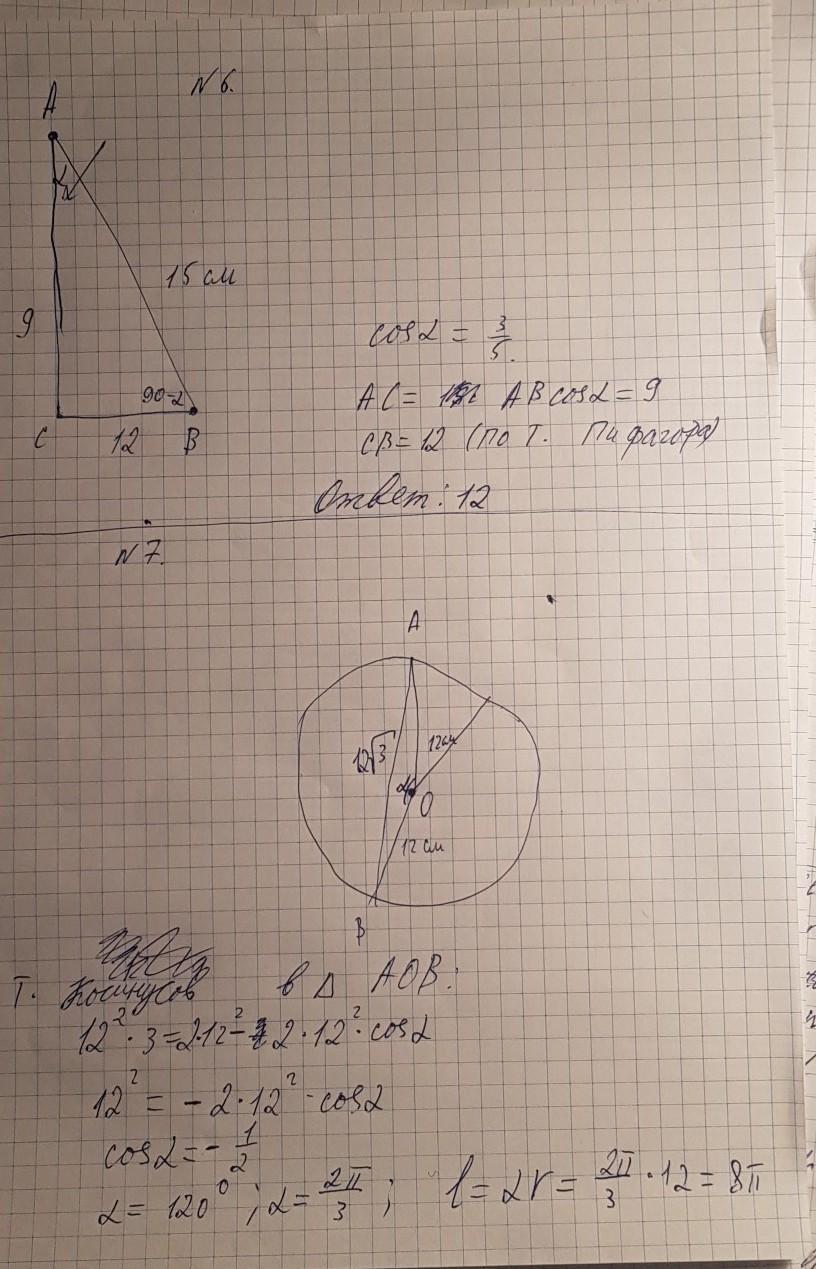 N 6.
A
α
15 см
9
90-α
C
12
B
cosα = 3/5.
AC = AB cosα = 9
CB = 12 (по т. Пифагора)
Ответ: 12
N 7.
A
12√3
12см
α
O
12 см
B
Т. Косинусов в Δ AOB:
12² · 3 = 2·12² - 2 · 12² · cosα
12² = - 2 · 12² · cosα
cosα = - 1/2
α = 120⁰ ; α = 2π/3 ; l = αr = 2π/3 · 12 = 8π